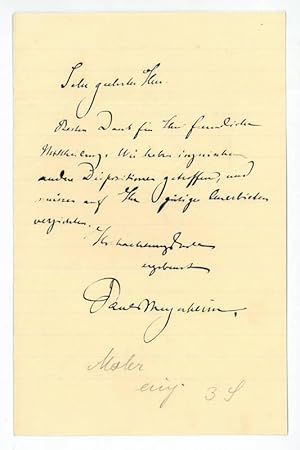 Sehr geehrter Herr.
Besten Dank für Ihre freundliche
Mittheilung. Wir haben inzwischen
andere Dispositionen getroffen, und
müssen auf Ihr gütiges Anerbieten
verzichten.
Ihr hochachtungsvoll
ergebenst
Paul Meyerheim.
Maler
eig. 3 S